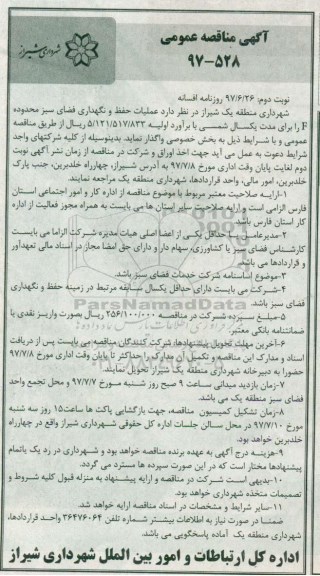 شهرداری شیراز
آگهی مناقصه عمومی
۹۷-۵۲۸
نوبت دوم: ۹۷/۶/۲۶ روزنامه افسانه
شهرداری منطقه یک شیراز در نظر دارد عملیات حفظ و نگهداری فضای سبز محدوده
F را برای مدت یکسال شمسی با برآورد اولیه ۵/۱۲۱/۵۱۷/۸۲۳ ریال از طریق مناقصه
عمومی و با شرایط ذیل به بخش خصوصی واگذار نماید. بدینوسیله از کلیه شرکتهای واجد
شرایط دعوت به عمل می آید جهت اخذ اوراق و شرکت در مناقصه از زمان نشر آگهی نوبت
دوم لغایت پایان وقت اداری مورخ ۹۷/۷/۸ به آدرس شیراز، چهارراه خلدبرین، جنب پارک
خلدبرین، امور مالی، واحد قراردادها، شهرداری منطقه یک مراجعه نمایند.
۱-ارایه صلاحیت معتبر مربوط با موضوع مناقصه از اداره کار و امور اجتماعی استان
فارس الزامی است و ارایه صلاحیت سایر استان ها می بایست به همراه مجوز فعالیت از اداره
کار استان فارس باشد.
۲-مدیرعامل یا حداقل یکی از اعضا اصلی هیات مدیره شرکت الزاما می بایست
کارشناس فضای سبز یا کشاورزی، سهام دار و دارای حق امضا مجاز در اسناد مالی تعهدآور
و قراردادها می باشد.
۳-موضوع اساسنامه شرکت خدمات فضای سبز باشد.
۴-شرکت می بایست دارای حداقل یکسال سابقه مرتبط در زمینه حفظ و نگهداری
فضای سبز باشد.
۵-مبلغ سپرده شرکت در مناقصه ۲۵۶/۱۰۰/۰۰۰ ریال بصورت واریز نقدی یا
ضمانتنامه بانکی معتبر.
۶-آخرین مهلت تحویل پیشنهادها: شرکت کنندگان مناقصه می بایست پس از دریافت
اسناد و مدارک این مناقصه و تکمیل آن مدارک را حداکثر تا پایان وقت اداری مورخ ۹۷/۷/۸
حضورا به دبیرخانه شهرداری منطقه یک شیراز تحویل نمایند.
۷-زمان بازدید میدانی ساعت ۹ صبح روز شنبه مورخ ۹۷/۷/۷ و محل تجمع واحد
فضای سبز منطقه یک می باشد.
۸-زمان تشکیل کمیسیون مناقصه، جهت بازگشایی پاکت ها ساعت ۱۵ روز سه شنبه
مورخ ۹۷/۷/۱۰ در محل سالن جلسات اداره کل حقوقی شهرداری شیراز واقع در چهارراه
خلدبرین خواهد بود.
۹-هزینه درج آگهی به عهده برنده مناقصه خواهد بود و شهرداری در رد یک یاتمام
پیشنهادها مختار است که در این صورت سپرده ها مسترد می گردد.
۱۰-بدیهی است شرکت در مناقصه و ارایه پیشنهاد به منزله قبول کلیه شروط و
تصمیمات متخذه شهرداری خواهد بود.
۱۱-سایر شرایط و مشخصات در اسناد مناقصه ارایه خواهد شد.
ضمنا در صورت نیاز به اطلاعات بیشتر شماره تلفن ۳۶۴۷۶۰۶۴ واحد قراردادها،
شهرداری منطقه یک آماده پاسخگویی می باشد.
اداره کل ارتباطات و امور بین الملل شهرداری شیراز
ParsNamadData